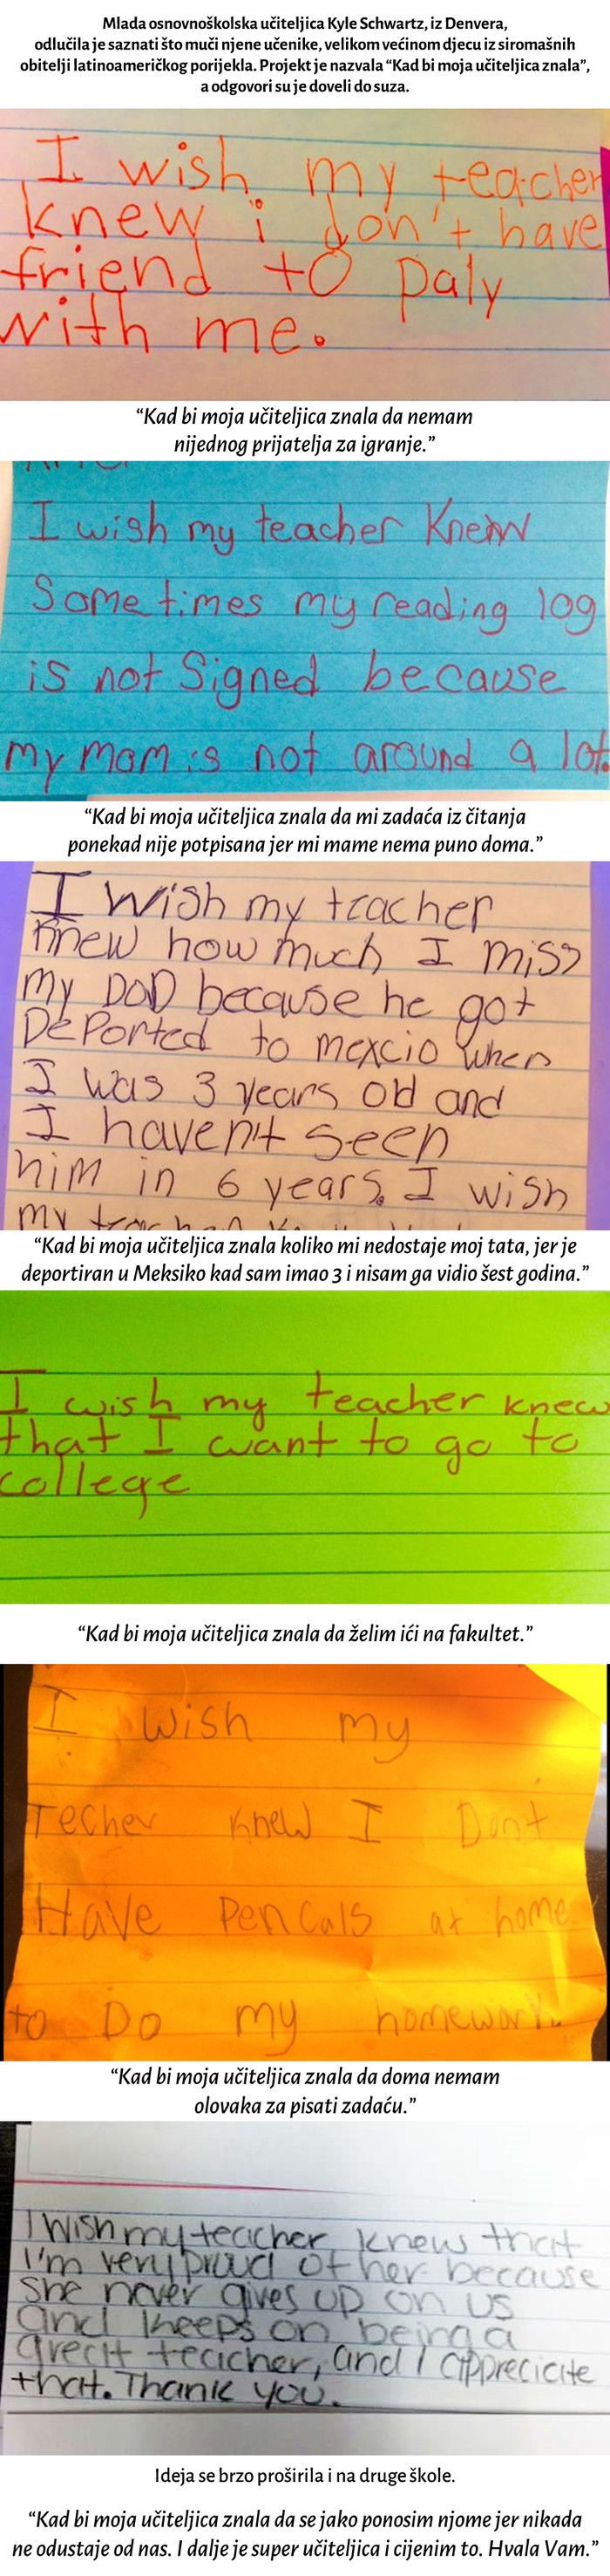 Mlada osnovnoškolska učiteljica Kyle Schwartz, iz Denvera,
odlučila je saznati što muči njene učenike, velikom većinom djecu iz siromašnih
obitelji latinoameričkog porijekla. Projekt je nazvala “Kad bi moja učiteljica znala”,
a odgovori su je doveli do suza.
I wish my teacher
knew i don't have
friend to paly
with me.
“Kad bi moja učiteljica znala da nemam
nijednog prijatelja za igranje.”
I wish my teacher Knew
Sometimes my reading log
is not Signed because
my mom is not around a lot.
“Kad bi moja učiteljica znala da mi zadaća iz čitanja
ponekad nije potpisana jer mi mame nema puno doma.”
I Wish my teacher
knew how much I miss
my DaD because he got
DePorted to mexcio when
I was 3 years old and
I haven't seen
him in 6 years. I wish
my
“Kad bi moja učiteljica znala koliko mi nedostaje moj tata, jer je
deportiran u Meksiko kad sam imao 3 i nisam ga vidio šest godina.”
I wish my teacher knew
that I want to go to
college
“Kad bi moja učiteljica znala da želim ići na fakultet.”
I wish my
Techer knew I Dont
Have Pencals at home
to Do my homework.
“Kad bi moja učiteljica znala da doma nemam
olovaka za pisati zadaću.”
I Wish my teacher knew that
I'm very proud of her because
she never gives up on us
and keeps on being a
great teacher, and I appreciate
that. Thank you.
Ideja se brzo proširila i na druge škole.
“Kad bi moja učiteljica znala da se jako ponosim njome jer nikada
ne odustaje od nas. I dalje je super učiteljica i cijenim to. Hvala Vam.”